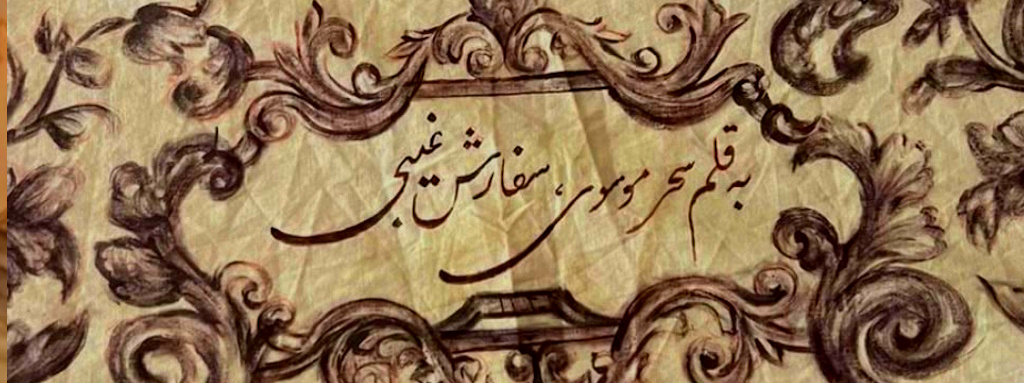 به قلم سحر موسوی، سفارش غیبی